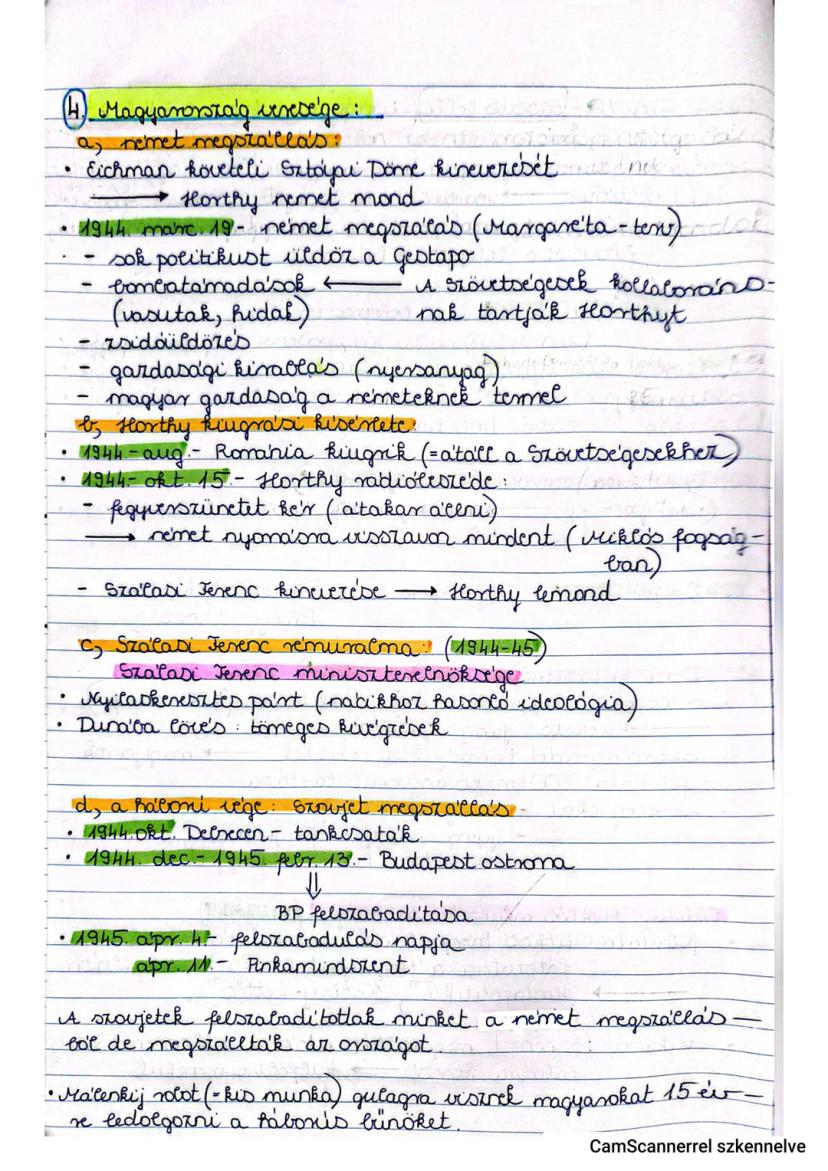 4. Magyarország veresége:
a, német megszállás:
• Eichman követeli Sztójai Döme kinevezését
→ Horthy nemet mond
• 1944. márc. 19 - német megszálás (Margaréta - terv)
- sok politikust üldöz a Gestapo
- bombatámadások ← A Szövetségesek kollaboráns-
(vasutak, hidak) nak tartják Horthyt
- zsidóüldözés
- gazdasági kirablás (nyersanyag)
- magyar gazdaság a németeknek termel
b, Horthy kiugrási kísérlete:
• 1944 - aug. - Románia kiugrik (=átáll a Szövetségesekhez)
• 1944- okt. 15 - Horthy rádióbeszéde:
- fegyverszünetet kér (át akar állni)
→ német nyomásra visszavon mindent (Miklós fogság-
ban)
- Szálasi Ferenc kinevezése → Horthy lemond
c, Szálasi Ferenc rémuralma: (1944-45)
Szálasi Ferenc miniszterelnöksége
• Nyilaskeresztes párt (nácikhoz hasonló ideológia)
• Dunába lövés: tömeges kivégzések
d, a háború vége: Szovjet megszállás
• 1944. okt. Debrecen - tankcsaták
• 1944. dec. - 1945. febr. 13. - Budapest ostroma
⇓
BP felszabadítása
• 1945. ápr. 4. - felszabadulás napja
ápr. 11. - Pinkamindszent
A szovjetek felszabadítottak minket a német megszállás —
ból de megszállták az országot
• Málenkij robot (= kis munka) gulagra visznek magyarokat 15 év —
re ledolgozni a háborús bűnöket.
CamScannerrel szkennelve